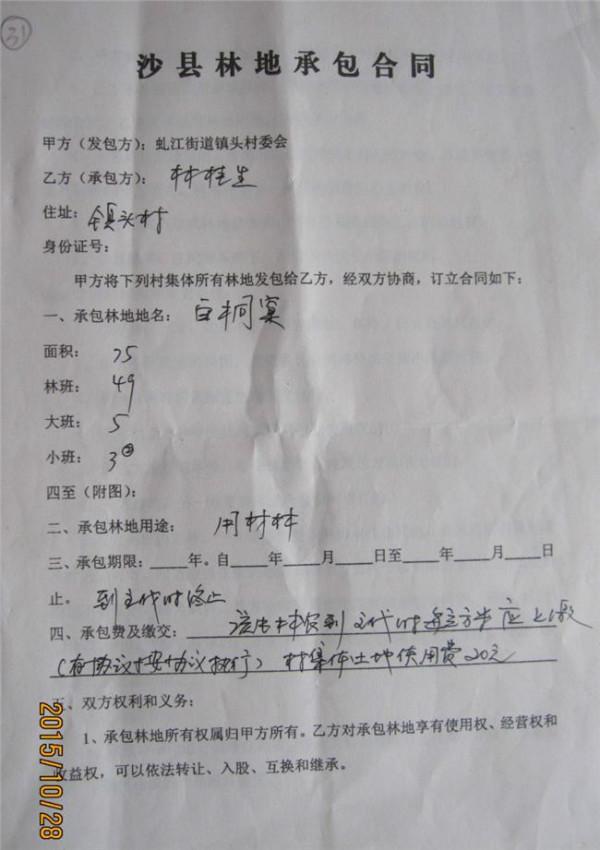 31
沙县林地承包合同
甲方（发包方）：虬江街道镇头村委会
乙方（承包方）：林桂生
住址：镇头村
身份证号：
甲方将下列村集体所有林地发包给乙方，经双方协商，订立合同如下：
一、承包林地地名：白桐窠
面积：75
林班：49
大班：5
小班：3
四至（附图）：
二、承包林地用途：用材林
三、承包期限：____年。自____年____月____日至____年____月____日
止。到主伐时终止
四、承包费及缴交：林农到主伐时每立方米应上缴
（有协议按协议执行）村集体土地使用费20元
五、双方权利和义务：
1、承包林地所有权属归甲方所有。乙方对承包林地享有使用权、经营权和
收益权，可以依法转让、入股、互换和继承。
2015/10/28